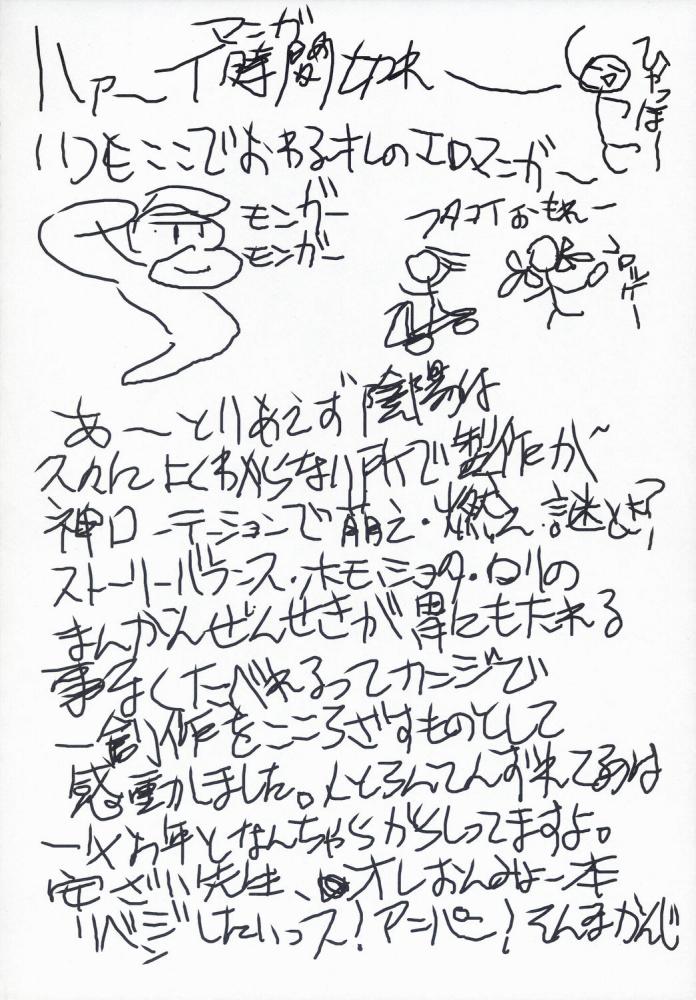 マニガ
ハァーイ時間
ひゃっほー
いつもここでおわるオレのエロマニガー
モンガー
モンガー
フタコイおもれー
ロッケー
あーとりあえず陰陽は
久々によくわからない所で製作が
神ローテーションで萌え・燃え・謎とき?
ストーリーバランス・ホモ・ショタ・ロリの
まんかんぜんせきが胃にもたれる
事なくたべれるってカンジで
一創作をこころざすものとして
感動しました。人とろんてんずれてるのは
一々お年となんちゃらがらしってますよ。
安ざい先生、オレおんみょー本
リベンジしたいっス!アニパー!そんまかんじ